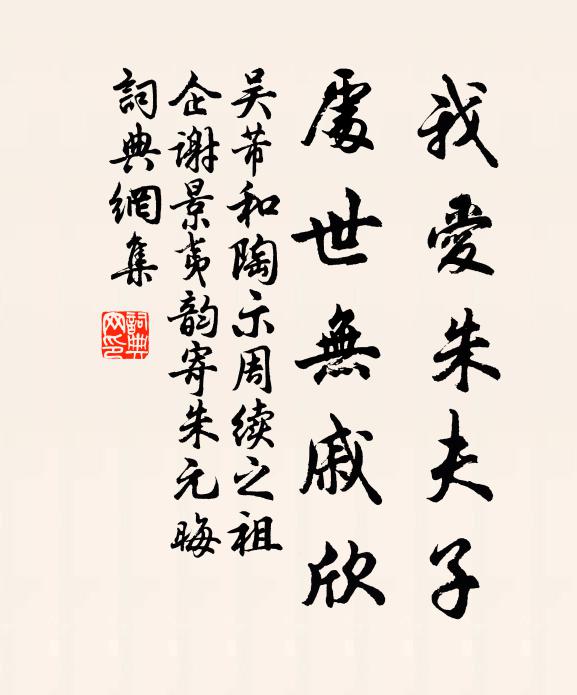 我愛朱夫子
處世無戚欣
吴芾和陶示周续之祖
企谢景夷韵寄朱元晦
詞典網集
詞典
网印